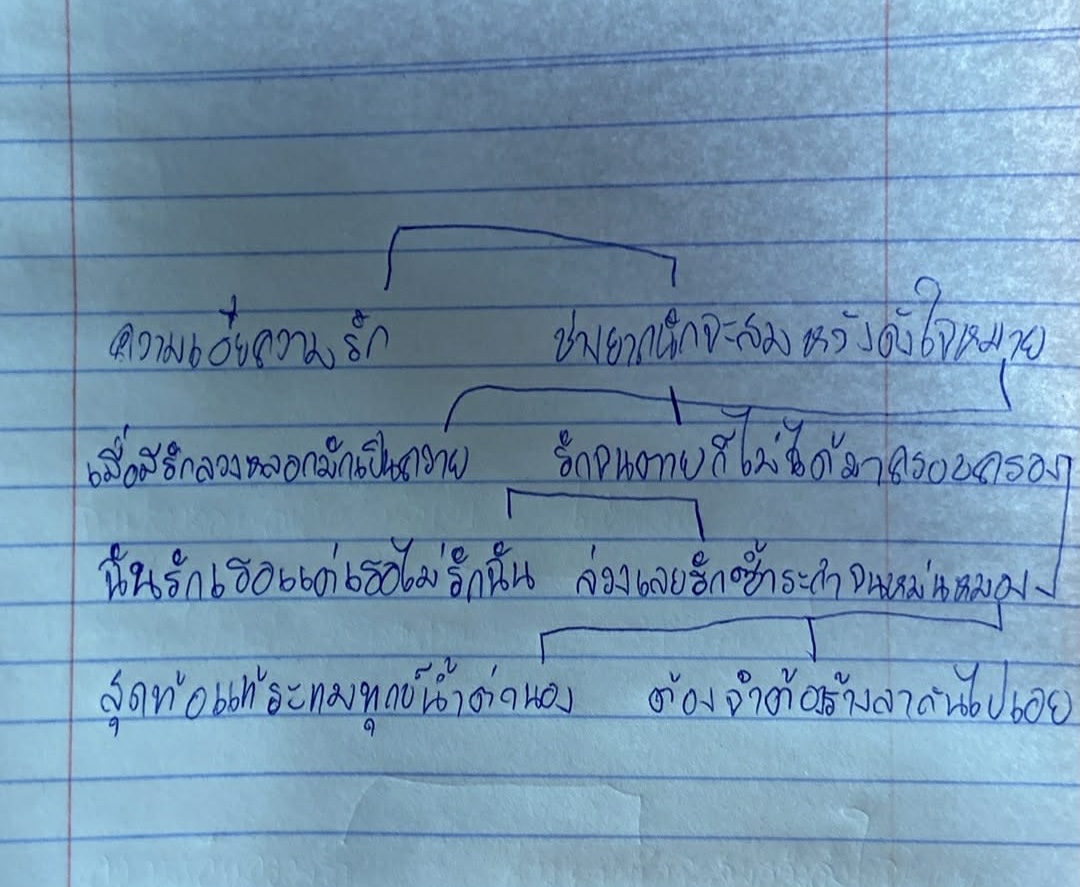 ความเอ๋ยความรัก ช่างยากนักจะสมหวังดังใจหมาย
เมื่อมีรักลวงหลอกมักเป็นควาย รักจนตายก็ไม่ได้มาครอบครอง
ฉันรักเธอแต่เธอไม่รักฉัน ล่วงเลยรักช้ำระกำจนหม่นหมอง
สุดท้อแท้ระทมทุกข์น้ำตานอง ต้องจำต้องร้างลากันไปเอย